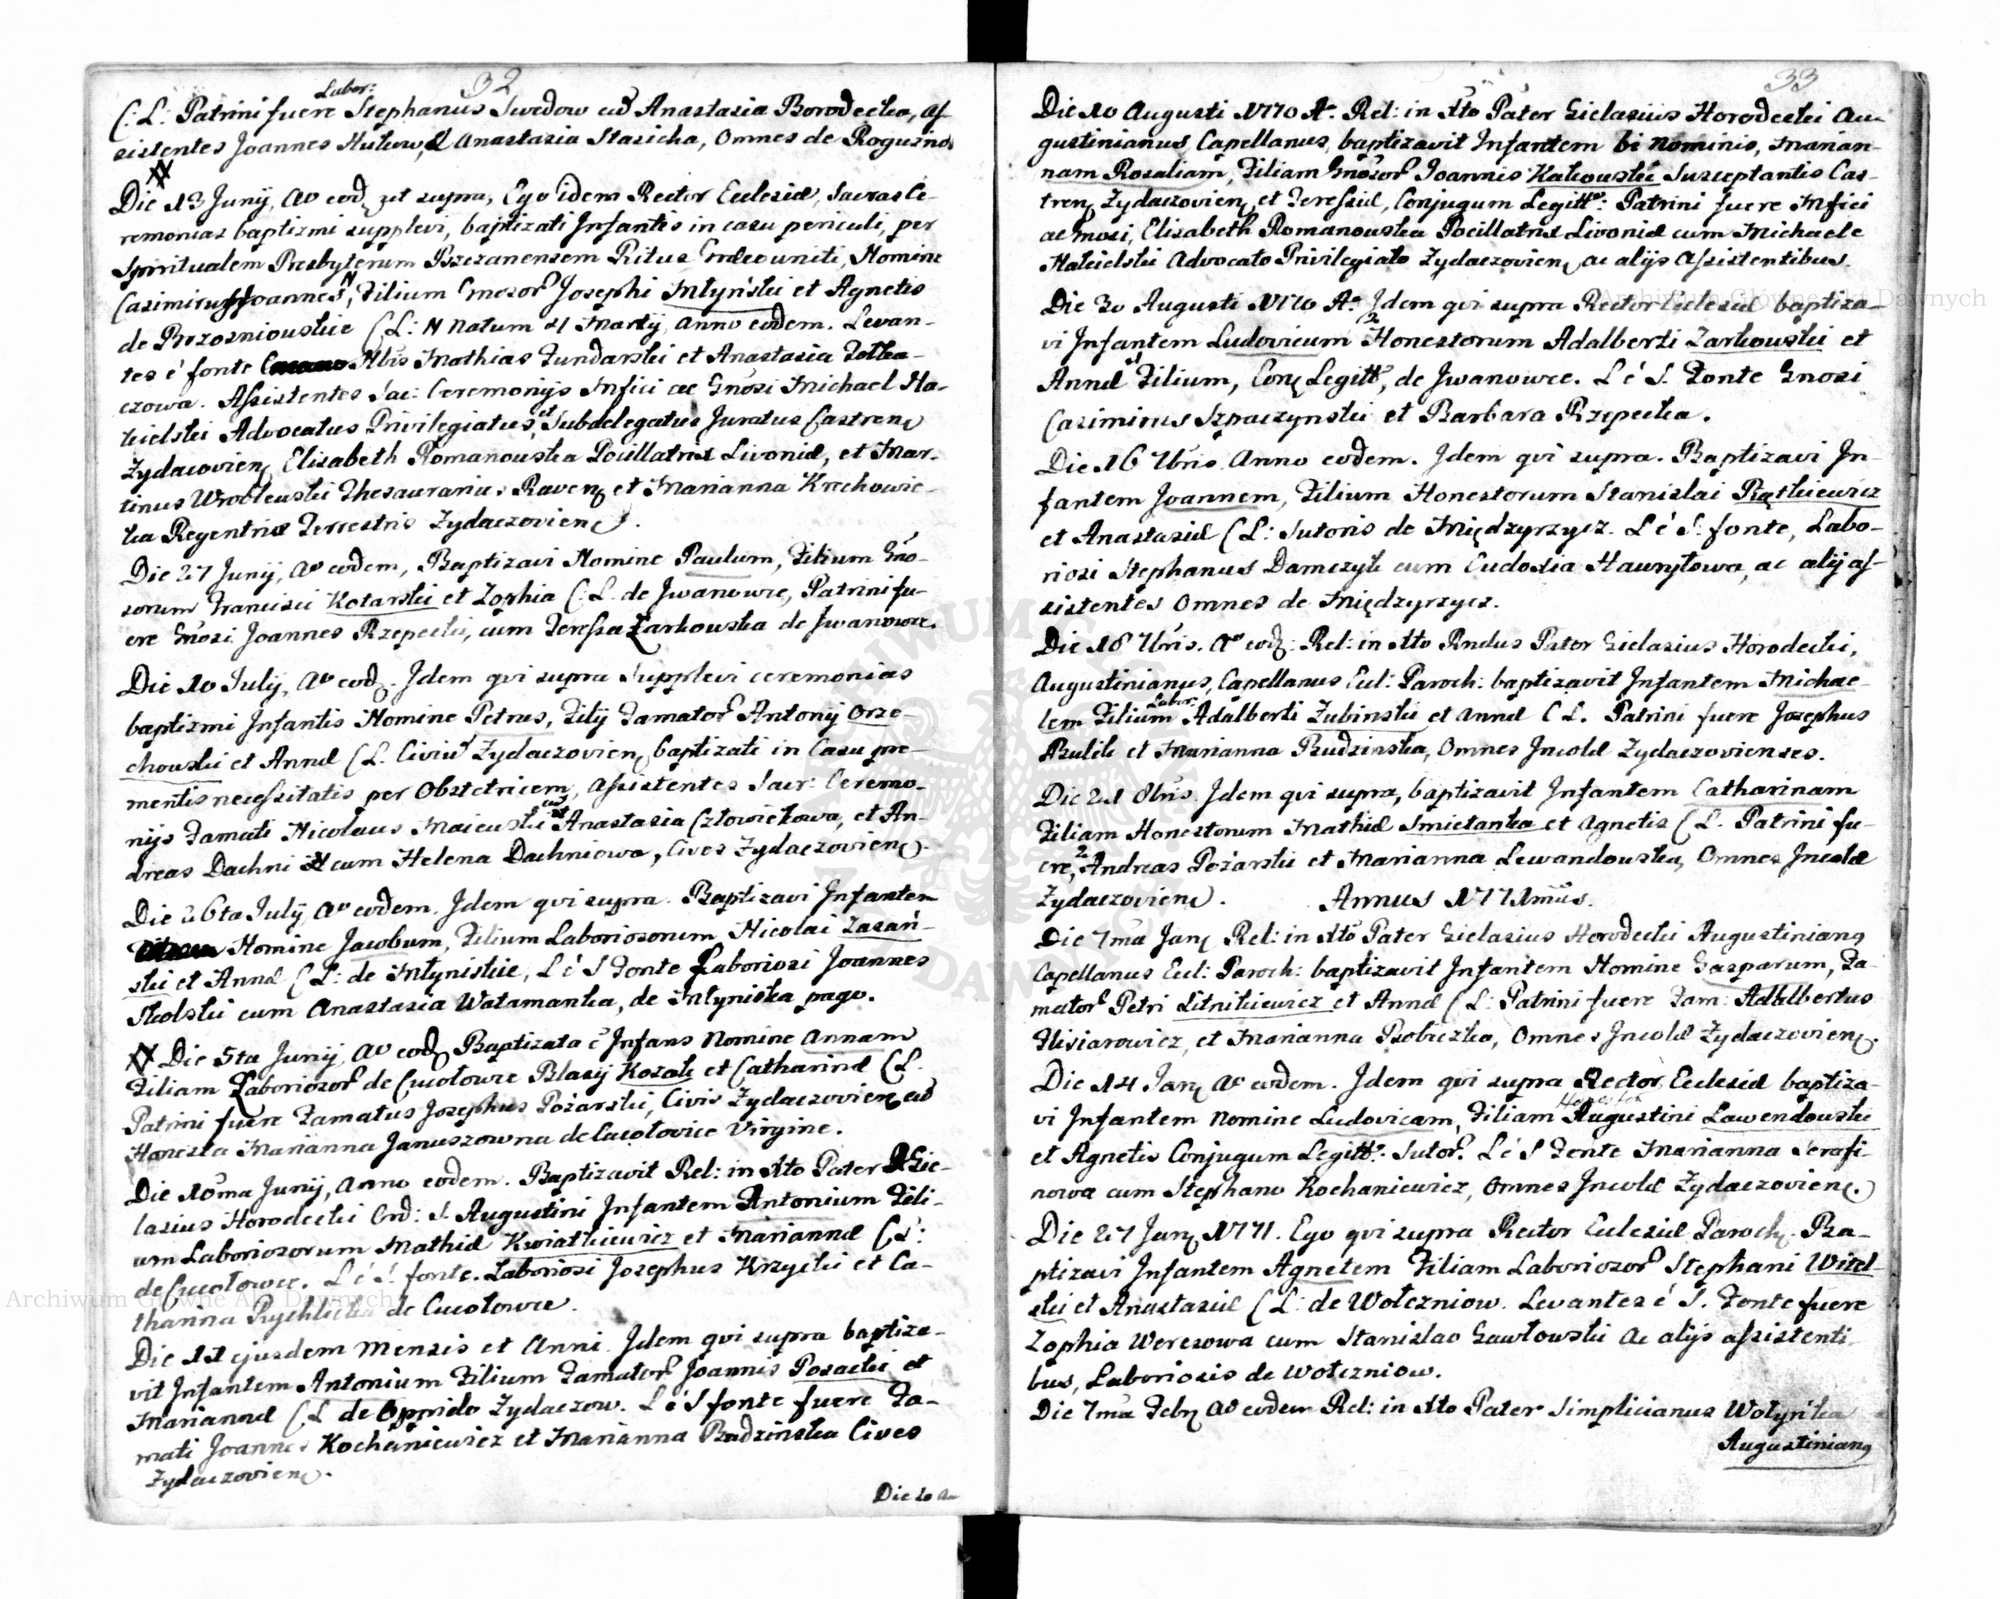 32
Labor:
C: L: Patrini fuere Stephanus Swedow cũ Anastasia Borodecka, as-
sistentes Joannes Hutow, & Anastasia Stasicha, Omnes de Roguzno
Die 13 Junij, Ao eod ut supra, Ego idem Rector Ecclesiæ, Sacras Ce-
remonias baptizmi supplevi, baptizati Infantis in casu periculi, per
Spiritualem Presbyterum Bzezanensem Ritus Græcouniti, Nomine
Casimirus Joannes, Filium Gnosor Josephi Młyński et Agnetis
de Brzozniowskie C: L: N Natum 4 Martij, anno eodem. Levan-
tes è fonte Mbis Mathias Fundarski et Anastasia
czowa. Assistentes Sac: Ceremonijs Mfici ac Gnosi Michael Ha-
kielski Advocatus Privilegiatus, et Subdelegatus Juratus Castren
Zydacovien, Elisabeth Romanowska Pocillatrix Livoniæ, et Mar-
tinus Wroblewski Thesaurarius Raven et Marianna Krechowie-
cka Regentria Terrestris Zydaczovien.
Die 27 Junij, Ao eodem, Baptizavi Nomine Paulum, Filium Gno-
sorum Francisci Kotarski et Zophia C: L. de Jwanowce, Patrini fu-
ere Gnosi Joannes Rzepecki, cum Teressa Zarkowska de Jwanowce.
Die 10 Julij, Ao eod. Jdem qvi supra Supplevi ceremonias
baptizmi Jnfantis Nomine Petrus, Filij Famator Antonij Orze-
chowski et Annæ C L. Civiũ Zydaczovien, baptizati in Casu pre-
mentis necessitatis per Obstetricem, Assistentes Sacr: Ceremo-
nijs Famati Nicolaus Maiewski cũ Anastasia Człowiekowa, et An-
dreas Dachni cum Helena Dachniowa, Cives Zydaczovien.
Die 26ta Julij, Ao eodem. Jdem qvi supra. Baptizavi Jnfantem
Nomine Jacobum, Filium Laboriosorum Nicolai Zasań-
ski et Annæ C L: de Młyniskie, L è S Fonte Laboriosi Joannes
Skolski cum Anastasia Watamanka, de Młyniska pago.
Die 5ta Junij, Ao eod Baptizata è Jnfans Nomine Annam
Filiam Laboriosor de Cucołowce Blasij Kozak et Catharinæ C L.
Patrini fuere Famatus Josephus Pożarski, Civis Zydaczovien cũ
Honesta Marianna Januszowna de Cucołovice Virgine.
Die 10ma Junij, Anno eodem. Baptizavit Rel: in Xto Pater Gie-
lasius Horodecki Ord: S. Augustini Jnfantem Antonium Fili-
um Laboriosorum Mathiæ Kwiatkiewicz et Mariannæ C L:
de Cucołowce. L è S: fonte. Laboriosi Josephus Krzycki et Ca-
tharina Rychlicka de Cucołowce.
Die 11 ejusdem Mensis et Anni. Jdem qvi supra baptiza-
vit Jnfantem Antonium Filium Famator Joannis Posacki et
Mariannæ C L de Oppido Zydaczow. L è S fonte fuere Fa-
mati Joannes Kochaniewicz et Marianna Budzinska Cives
Zydaczovien.
Die 10 A-
33
Die 10 Augusti 1770 A. Rel: in Xto Pater Gielasius Horodecki Au-
gustinianus Capellanus, baptizavit Jnfantem bi Nominis, Marian-
nam Rosaliam, Filiam Gnosor Joannis Kałkowski Susceptantis Cas-
tren Zydaczovien, et Teressiæ, Conjugum Legitt: Patrini fuere Mfici
ac Gnosi, Elisabeth Romanowska Pocillatrix Livoniæ cum Michaele
Hakielski Advocato Privilegiato Zydaczovien, ac alijs Assistentibus.
Die 30 Augusti 1770 A. Jdem qvi supra Rector Eclesiæ baptiza-
vi Jnfantem Ludovicum Honestorum Adalberti Zarkowski et
Annæ Filium, Conj Legitt, de Jwanowce. L è S. Fonte Gnosi
Casimirus Szpaczynski et Barbara Rzepecka.
Die 16 7bris Anno eodem. Jdem qvi supra. Baptizavi Jn-
fantem Joannem, Filium Honestorum Stanislai Piątkiewicz
et Anastasiæ C L: Sutoris de Międzyrzycz. L è S: fonte, Labo-
riosi Stephanus Damczyk cum Eudoxia Hawryłowa, ac alij as-
sistentes Omnes de Międzyrzycz.
Die 18 7bris. Ao eod: Rel: in Xto Rndus Pater Gielasius Horodecki,
Augustinianus, Capellanus Ecl: Paroch: baptizavit Jnfantem Michae-
lem Filium Labor: Adalberti Zubinski et Annæ C L. Patrini fuere Josephus
Bulik et Marianna Budzinska, Omnes Jncolæ Zydaczovienses.
Die 21 8bris. Jdem qvi supra, baptizavit Jnfantem Catharinam
Filiam Honestorum Mathiæ Smietanka et Agnetis C L. Patrini fu-
ere, Andreas Pożarski et Marianna Lewandowska, Omnes Jncolæ
Zydaczovien. Annus 1771mus.
Die 7ma Jan Rel: in Xto Pater Gielasius Horodecki Augustinian9
Capellanus Ecl: Paroch: baptizavit Jnfantem Nomine Gasparum, Fa-
mator Petri Litnikiewicz et Annæ C L: Patrini fuere Fam: Adalbertus
Flisiarowicz, et Marianna Bobrczka, Omnes Jncolæ Zydaczovien.
Die 14 Jan Ao eodem. Jdem qvi supra Rector Ecclesiæ baptiza-
vi Jnfantem Nomine Ludovicam, Filiam Augustini Lawendowski
et Agnetis Conjugum Legitt: Sutor. L è S Fonte Marianna Serafi-
nowa cum Stephano Kochaniewicz, Omnes Jncolæ Zydaczovien.
Die 27 Jan 1771. Ego qvi supra Rector Eclesiæ Paroch. Ba-
ptizavi Jnfantem Agnetem Filiam Laboriosor Stephani Witel-
ski et Anastasiæ C L: de Wołczniow. Levantes è S. Fonte fuere
Zophia Weresowa cum Stanislao Gawłowski ac alijs assistenti-
bus, Laboriosis de Wołczniow.
Die 7ma Febr Ao eodem Rel: in Xto Pater Simplicianus Wołyńka
Augustinian9
Archiwum Główne Akt Dawnych
Archiwum Główne Akt Dawnych